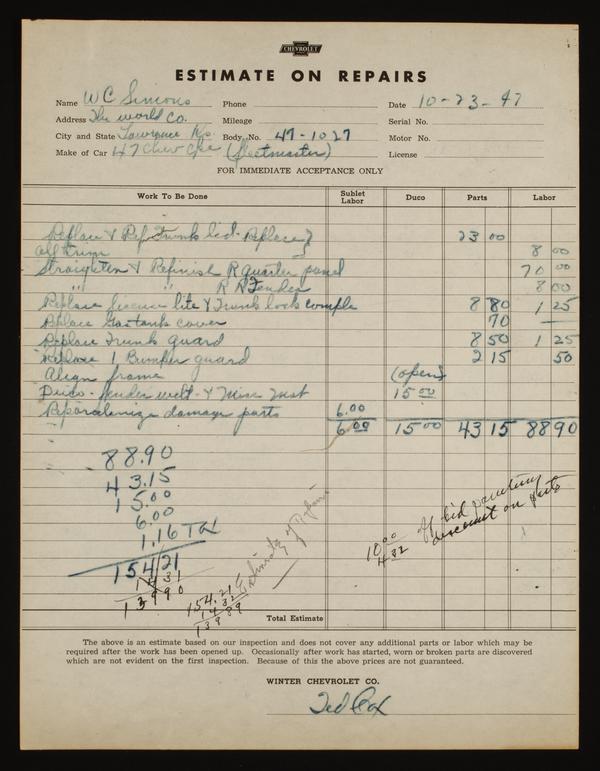 CHEVROLET
ESTIMATE ON REPAIRS
Name W C Simons Phone Date 10-23-47
Address The World Co. Mileage Serial No.
City and State Lawrence Ks. Body No. 47-1027 Motor No.
Make of Car 47 Chev Cpe (Fleetmaster) License
FOR IMMEDIATE ACCEPTANCE ONLY
Work To Be Done Sublet Labor Duco Parts Labor
Replace & Ref Trunk lid - Replace } 23 00
all trim 8 00
Straighten & Refinish R quarter panel 70 00
" " R R Fender 8 00
Replace license lite & Trunk lock comple 8 80 1 25
Replace Gas tank cover 70 —
Replace Trunk guard 8 50 1 25
Replace 1 Bumper guard 2 15 50
Align frame (open)
Duco - fender welt - & Misc 15 00
damage parts 6.00
6.00 15 00 43 15 88 90
88.90
43.15
15.00
6.00
1.16 Tax
154 21
14 31
139 90
154.21
14 32
139 89
Estimate of Repair
10 00 off bid painting
4 32 discount on parts
Total Estimate
The above is an estimate based on our inspection and does not cover any additional parts or labor which may be
required after the work has been opened up. Occasionally after work has started, worn or broken parts are discovered
which are not evident on the first inspection. Because of this the above prices are not guaranteed.
WINTER CHEVROLET CO.
Ted Cox